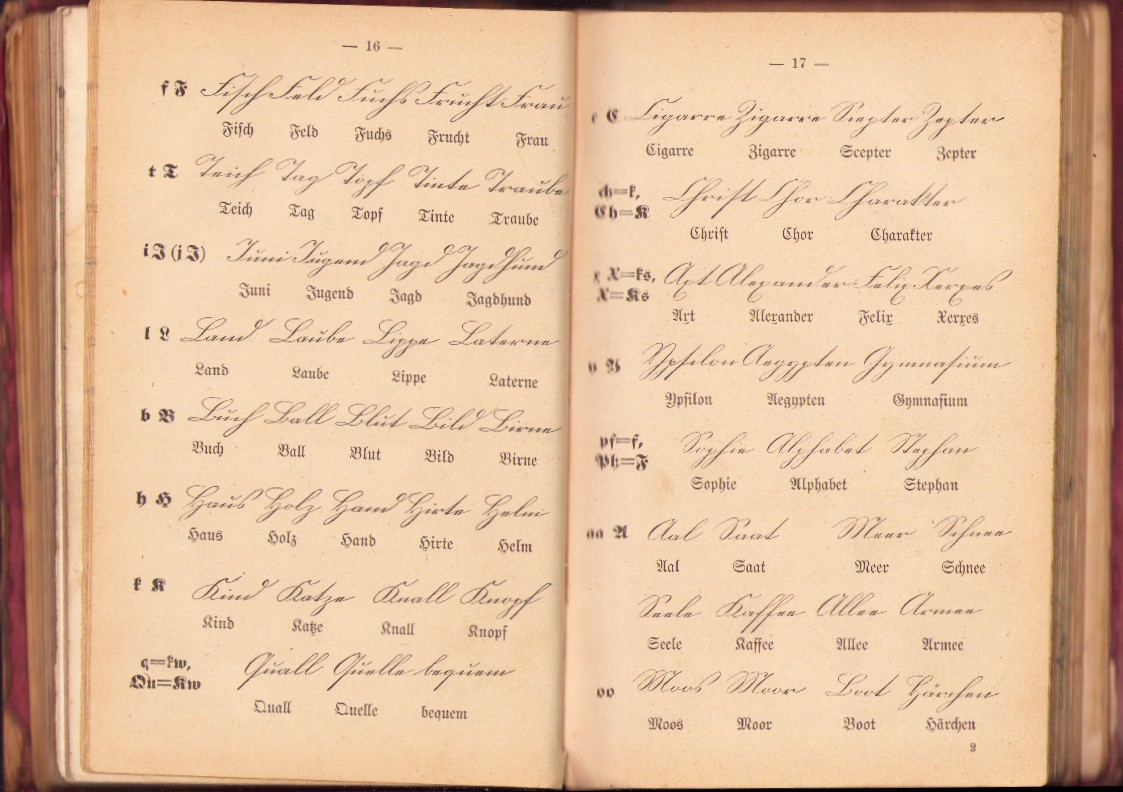 — 16 —
f F Fisch Feld Fuchs Frucht Frau
Fisch Feld Fuchs Frucht Frau
t T Teich Tag Topf Tinte Traube
Teich Tag Topf Tinte Traube
i J (j J) Juni Jugend Jagd Jagdhund
Juni Jugend Jagd Jagdhund
l L Land Laube Lippe Laterne
Land Laube Lippe Laterne
b B Buch Ball Blut Bild Birne
Buch Ball Blut Bild Birne
h H Haus Holz Hand Hirte Helm
Haus Holz Hand Hirte Helm
k K Kind Katze Knall Knopf
Kind Katze Knall Knopf
q=kw,
Qu=Kw Quall Quelle bequem
Quall Quelle bequem
— 17 —
c C Cigarre Zigarre Scepter Zepter
Cigarre Zigarre Scepter Zepter
ch=k,
Ch=K Christ Chor Charakter
Christ Chor Charakter
x X=ks,
X=Ks Axt Alexander Felix Xerxes
Axt Alexander Felix Xerxes
y Y Ypsilon Aegypten Gymnasium
Ypsilon Aegypten Gymnasium
pf=f,
Ph=F Sophie Alphabet Stephan
Sophie Alphabet Stephan
aa A Aal Saat Meer Schnee
Aal Saat Meer Schnee
Seele Kaffee Allee Armee
Seele Kaffee Allee Armee
oo Moos Moor Boot Härchen
Moos Moor Boot Härchen
2